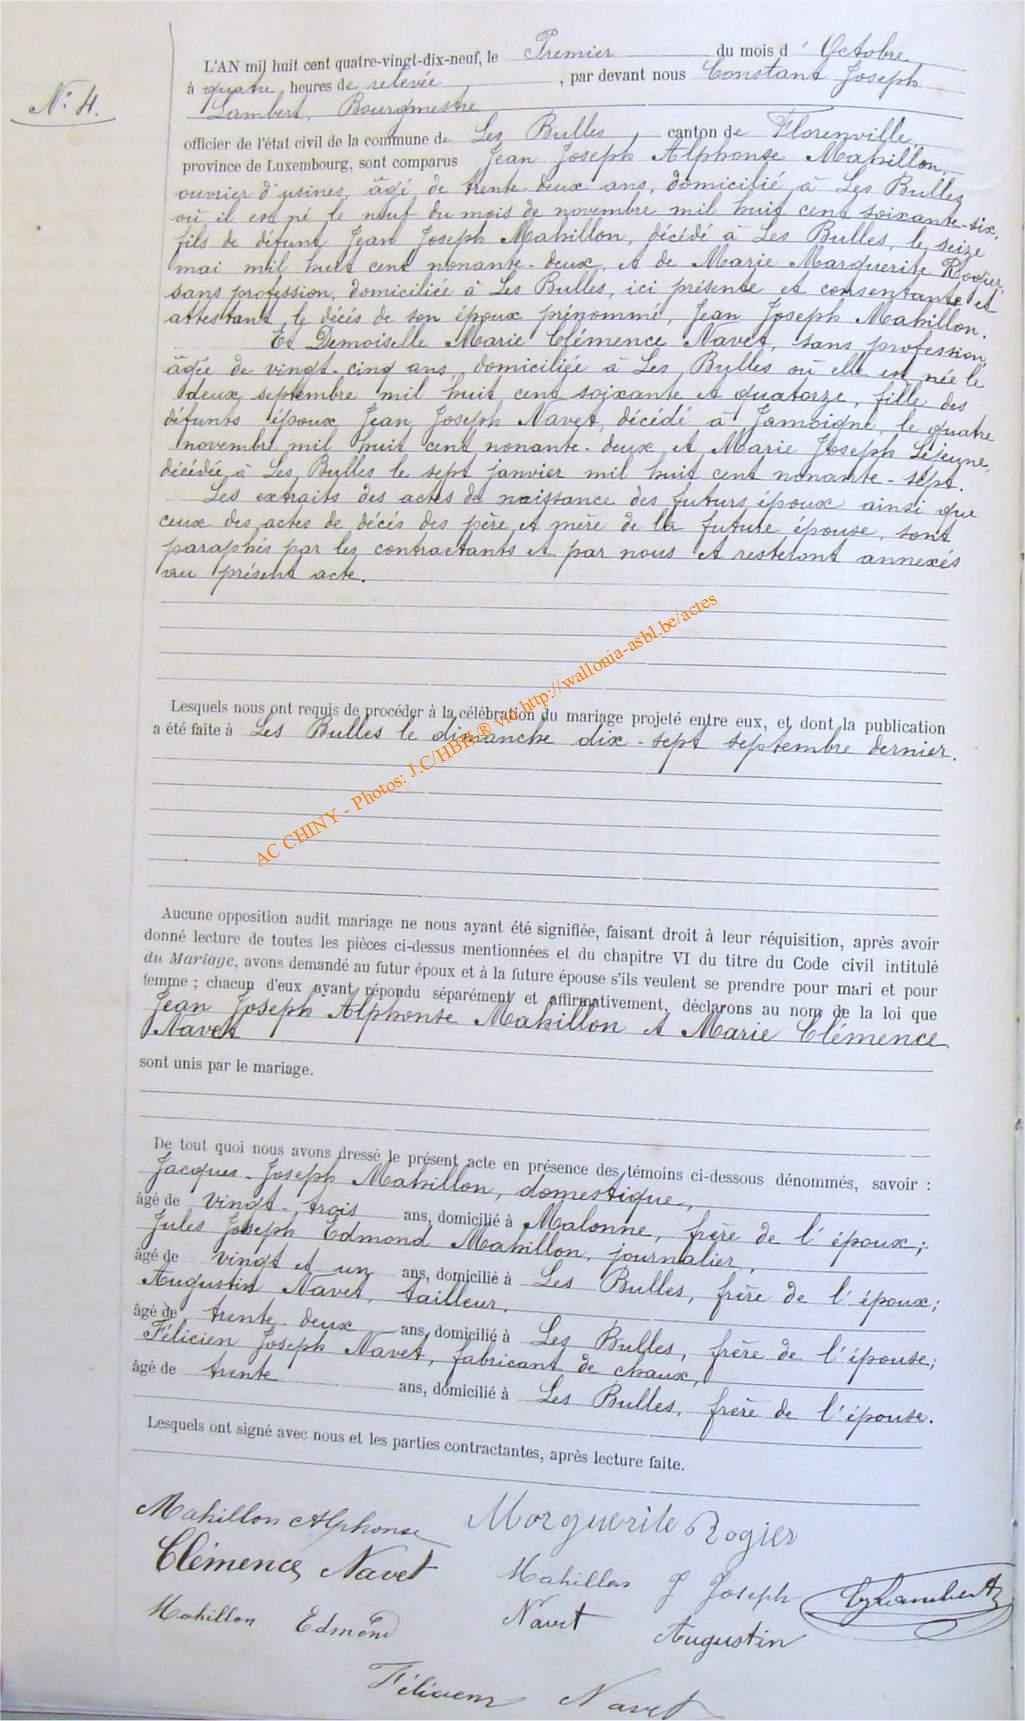 N° 4.
L'AN mil huit cent quatre-vingt-dix-neuf, le Premier du mois d'Octobre
à quatre heures de relevée, par devant nous Constant Joseph
Lambert, Bourgmestre
officier de l'état civil de la commune de Les Bulles, canton de Florenville,
province de Luxembourg, sont comparus Jean Joseph Alphonse Mahillon,
ouvrier d'usines, âgé de trente deux ans, domicilié à Les Bulles
où il est né le neuf du mois de novembre mil huit cent soixante-six,
fils de défunt Jean Joseph Mahillon, décédé à Les Bulles, le seize
mai mil huit cent nonante-deux, et de Marie Marguerite Rogier,
sans profession, domiciliée à Les Bulles, ici présente et consentante et
attestant le décès de son époux prénommé, Jean Joseph Mahillon.
Et Demoiselle Marie Clémence Navet, sans profession,
âgée de vingt-cinq ans, domiciliée à Les Bulles où elle est née le
deux septembre mil huit cent soixante et quatorze, fille des
défunts époux Jean Joseph Navet, décédé à Jamoigne, le quatre
novembre mil huit cent nonante-deux et Marie Joseph Lejeune,
décédée à Les Bulles le sept janvier mil huit cent nonante-sept.
Les extraits des actes de naissance des futurs époux ainsi que
ceux des actes de décès des père et mère de la future épouse, sont
paraphés par les contractants et par nous et resteront annexés
au présent acte.
Lesquels nous ont requis de procéder à la célébration du mariage projeté entre eux, et dont la publication
a été faite à Les Bulles le dimanche dix-sept septembre dernier.
AC CHINY - Photos: J.C/HBH® via http://wallonia-asbl.be/actes
Aucune opposition audit mariage ne nous ayant été signifiée, faisant droit à leur réquisition, après avoir
donné lecture de toutes les pièces ci-dessus mentionnées et du chapitre VI du titre du Code civil intitulé
du Mariage, avons demandé au futur époux et à la future épouse s'ils veulent se prendre pour mari et pour
femme ; chacun d'eux ayant répondu séparément et affirmativement, déclarons au nom de la loi que
Jean Joseph Alphonse Mahillon et Marie Clémence
Navet
sont unis par le mariage.
De tout quoi nous avons dressé le présent acte en présence des témoins ci-dessous dénommés, savoir :
Jacques-Joseph Mahillon, domestique,
âgé de vingt-trois ans, domicilié à Malonne, frère de l'époux;
Jules Joseph Edmond Mahillon, journalier,
âgé de vingt et un ans, domicilié à Les Bulles, frère de l'époux;
Augustin Navet, tailleur,
âgé de trente-deux ans, domicilié à Les Bulles, frère de l'épouse;
Félicien Joseph Navet, fabricant de chaux,
âgé de trente ans, domicilié à Les Bulles, frère de l'épouse.
Lesquels ont signé avec nous et les parties contractantes, après lecture faite.
Mahillon Alphonse Marguerite Rogier
Clémence Navet Mahillon J Joseph Lambert
Mahillon Edmond Navet Augustin
Félicien Navet